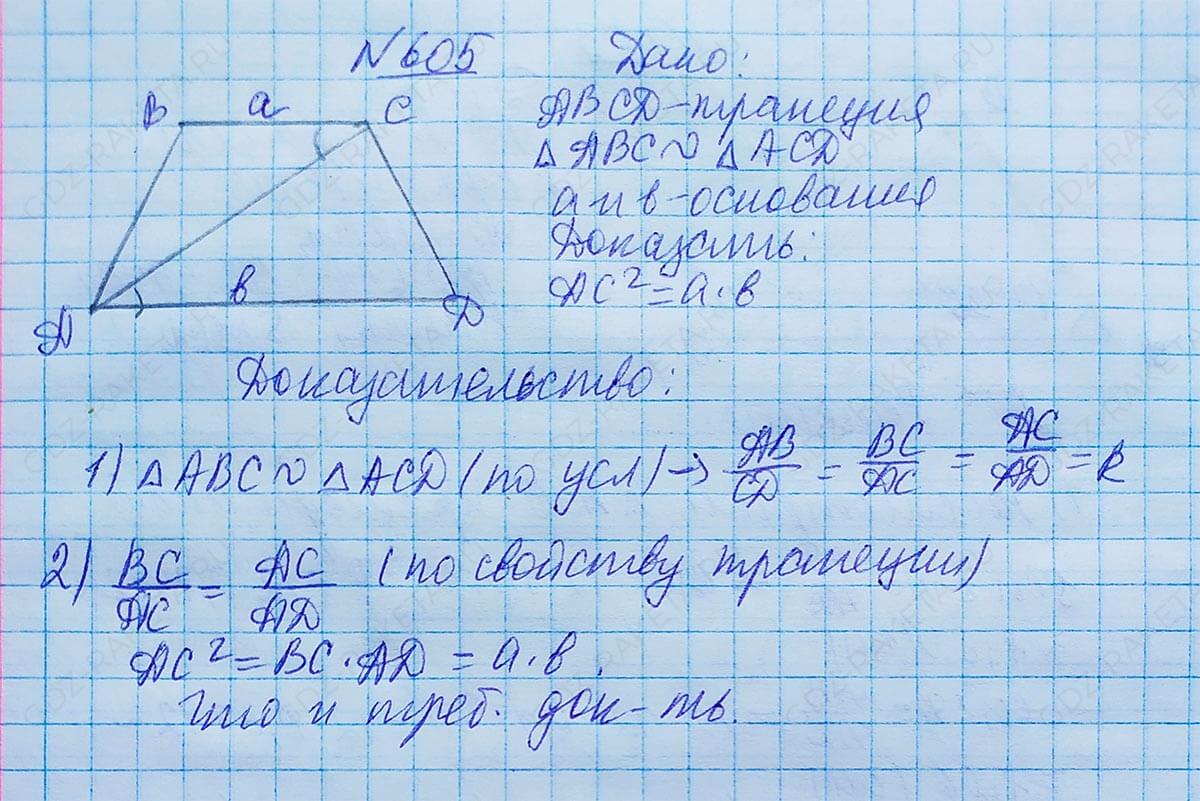 N 605
B a C
в
A D
Дано:
ABCD-трапеция
△ABC∾△ACD
a и в-основания
Доказать:
AC²=a·в
Доказательство:
1) △ABC∾△ACD (по усл) → AB/CD = BC/AC = AC/AD = k
2) BC/AC = AC/AD (по свойству трапеции)
AC² = BC·AD = a·в.
Что и треб. док-ть.